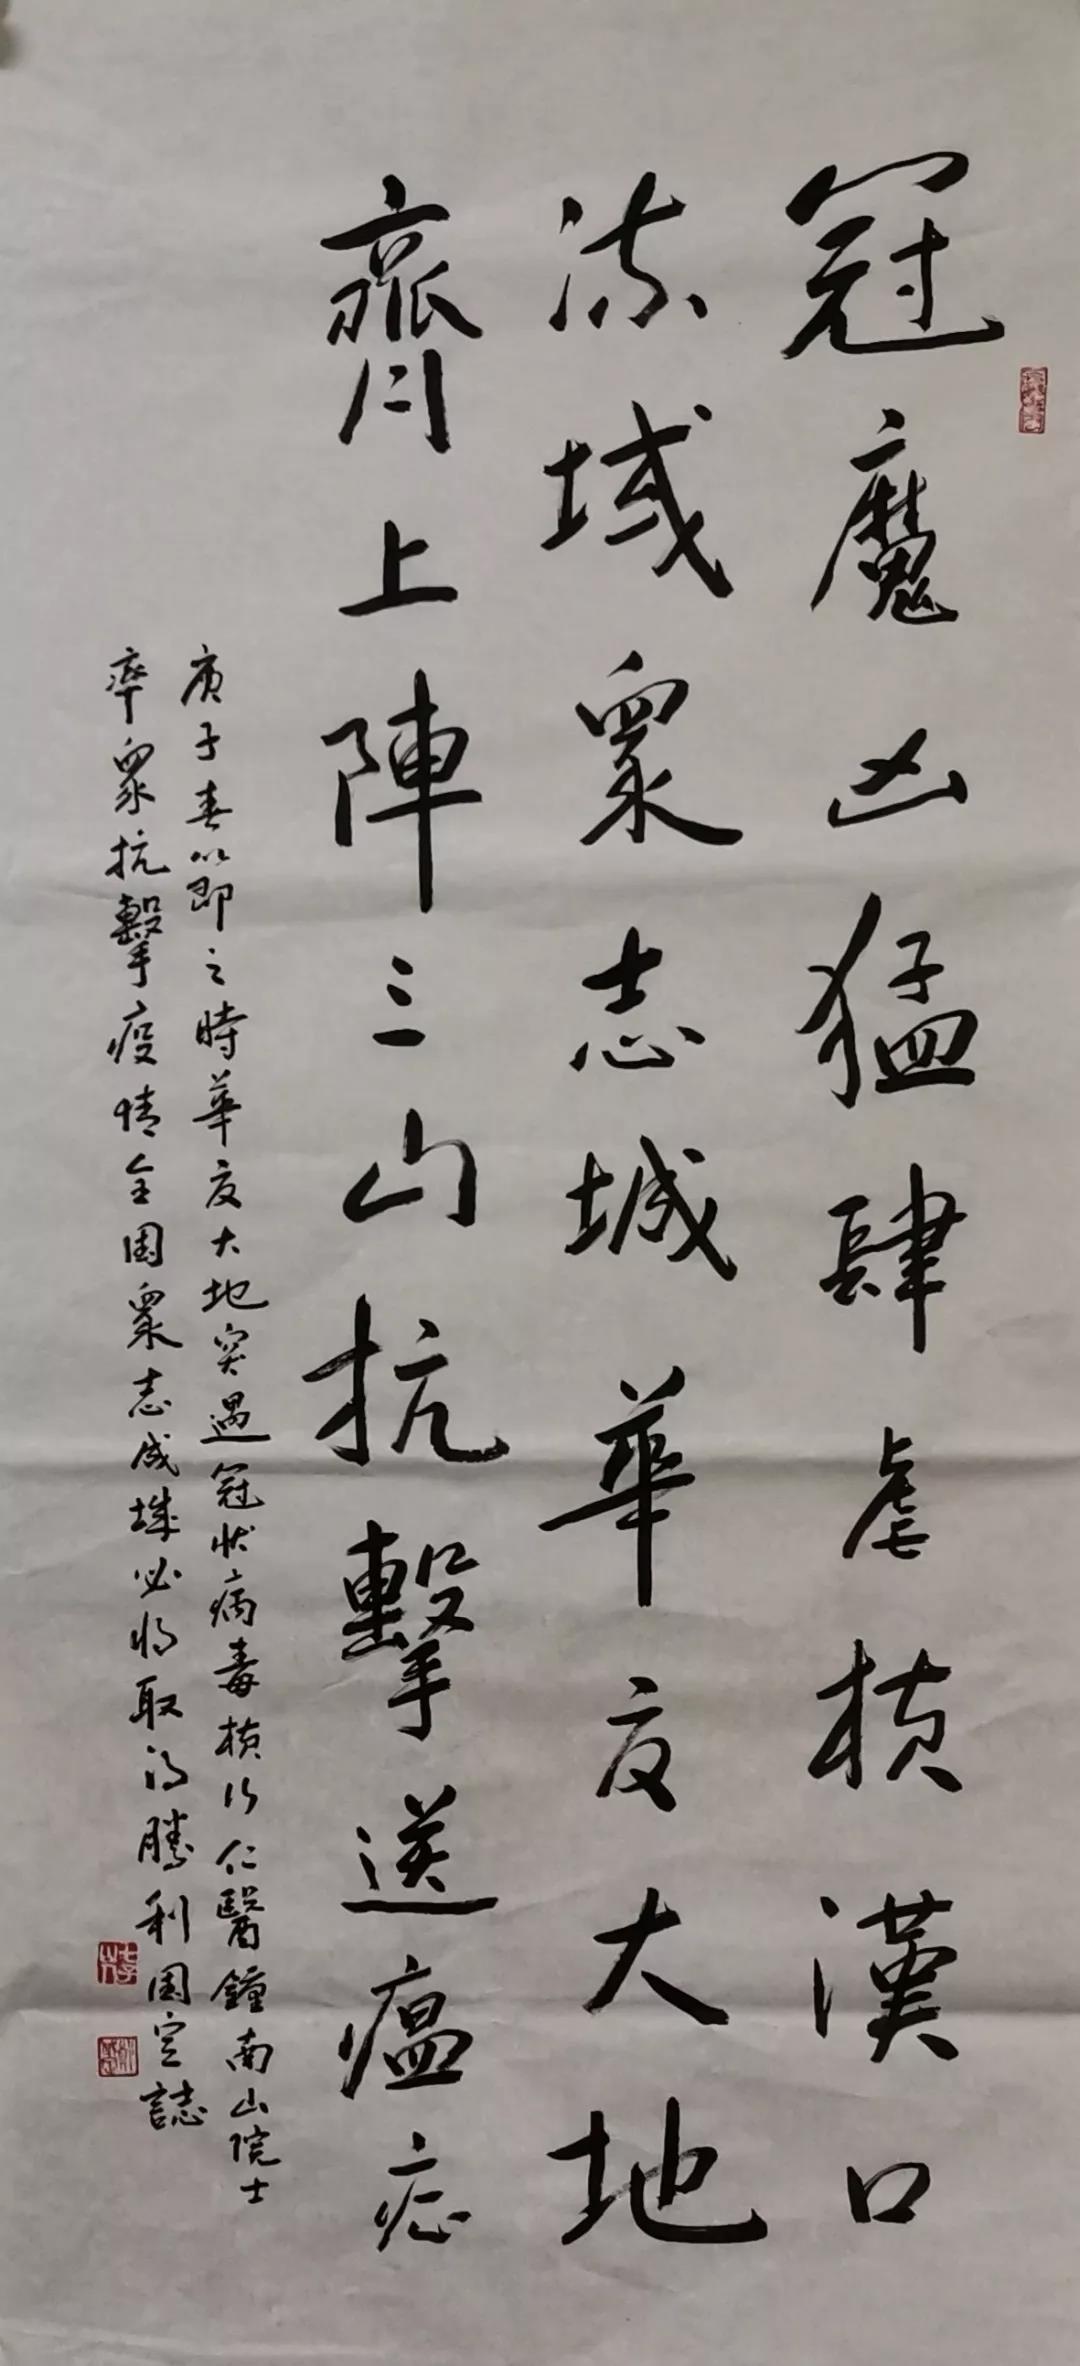 冠魔凶猛肆虐横漢口
流域眾志城華夏大地
齊上陣三山抗擊送瘟症
庚子春以即之時華夏大地突遇冠狀病毒横行仁醫鐘南山院士
率眾抗擊疫情全國眾志成城必將取得勝利國定誌